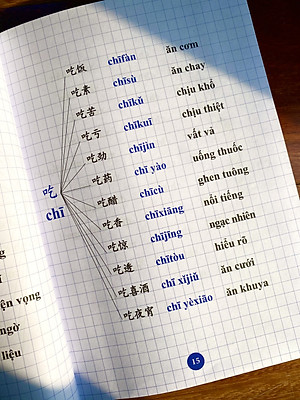 吃饭 chīfàn ăn cơm
吃素 chīsù ăn chay
吃苦 chīkǔ chịu khổ
吃亏 chīkuī chịu thiệt
吃劲 chījìn vất vả
吃药 chī yào uống thuốc
吃
chī
吃醋 chīcù ghen tuông
吃香 chīxiāng nổi tiếng
吃惊 chījīng ngạc nhiên
吃透 chītòu hiểu rõ
吃喜酒 chī xǐjiǔ ăn cưới
吃夜宵 chī yèxiāo ăn khuya
ện vọng
ngờ
liệu
15